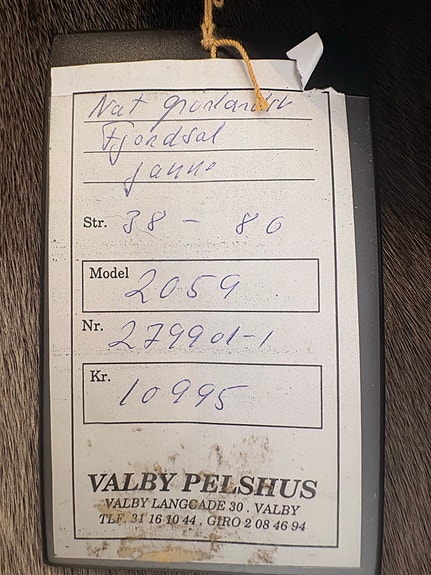 Nat grønlandsk
Fjordsæl
Janne
Str. 38 - 80
Model 2059
Nr. 27990l-1
Kr. 10995
VALBY PELSHUS
VALBY LANGGADE 30 . VALBY
TLF. 31 16 10 44 . GIRO 2 08 46 94